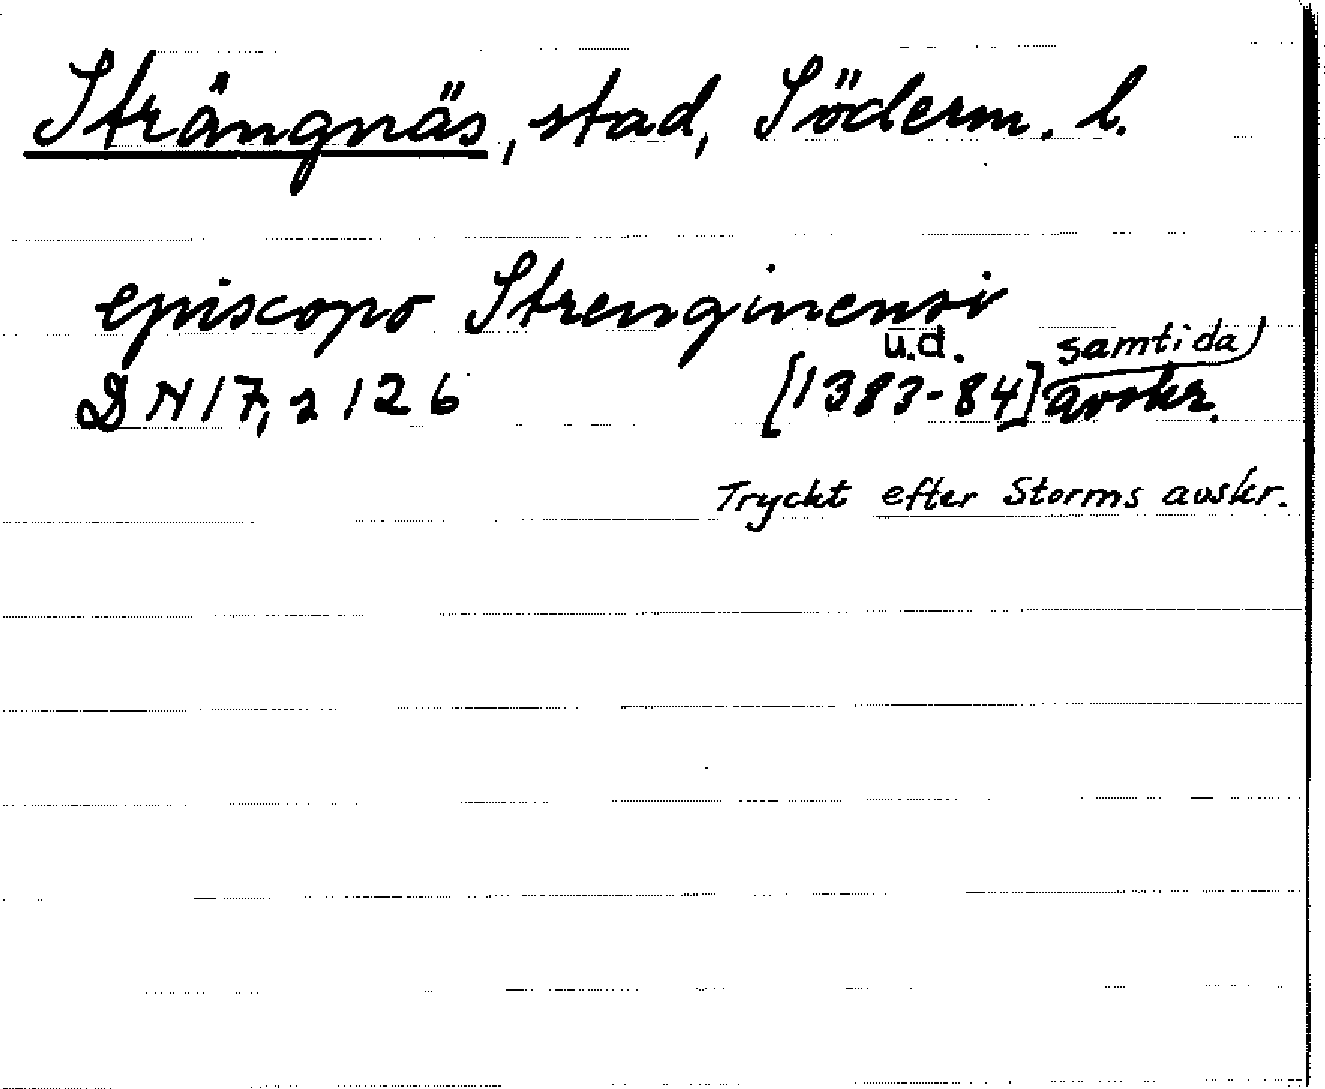 Strängnäs, stad, Söderm. l.
episcopo Strenginensi
u.d. samtida
DN 17,2 126 [1383-84] avskr.
Tryckt efter Storms avskr.